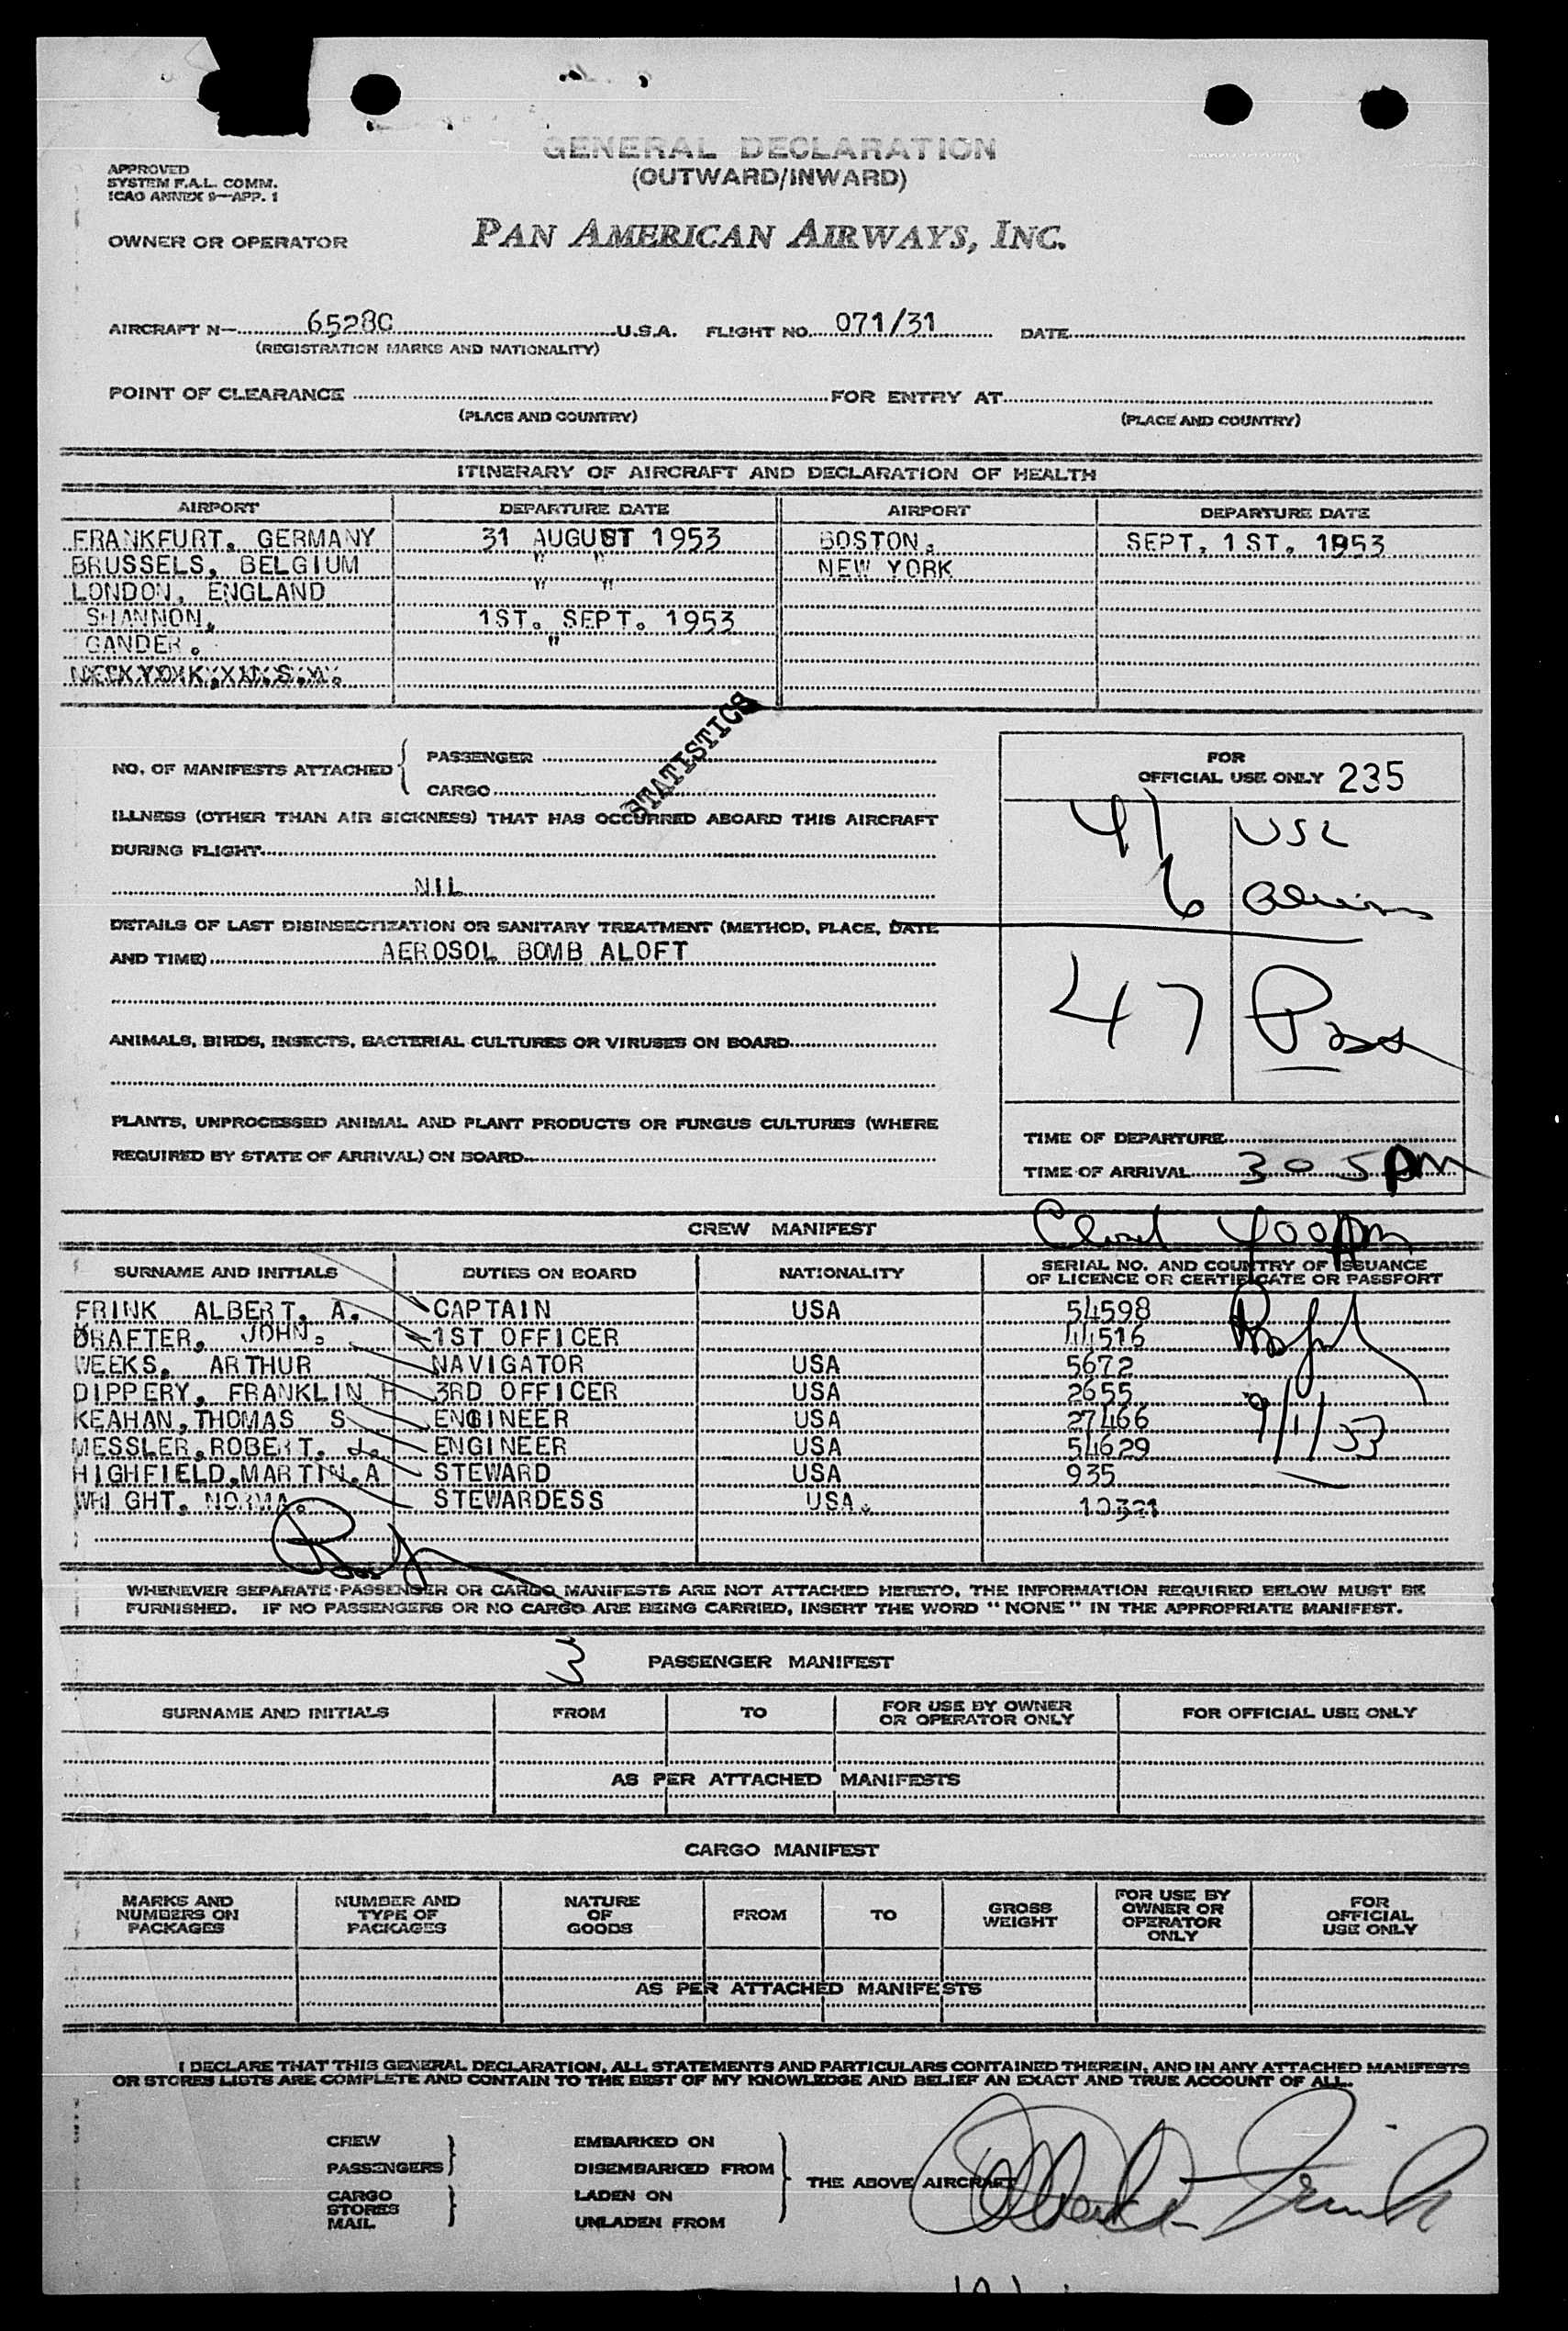 GENERAL DECLARATION
(OUTWARD/INWARD)
APPROVED
SYSTEM F.A.L. COMM.
ICAO ANNEX 9—APP. 1
OWNER OR OPERATOR PAN AMERICAN AIRWAYS, INC.
AIRCRAFT N— 6528C U.S.A. FLIGHT NO. 071/31 DATE
(REGISTRATION MARKS AND NATIONALITY)
POINT OF CLEARANCE FOR ENTRY AT
(PLACE AND COUNTRY) (PLACE AND COUNTRY)
ITINERARY OF AIRCRAFT AND DECLARATION OF HEALTH
AIRPORT DEPARTURE DATE AIRPORT DEPARTURE DATE
FRANKFURT, GERMANY 31 AUGUST 1953 BOSTON. SEPT. 1ST. 1953
BRUSSELS, BELGIUM " " NEW YORK
LONDON, ENGLAND " "
SHANNON, 1ST. SEPT. 1953
GANDER. "
STATISTICS
NO. OF MANIFESTS ATTACHED { PASSENGER
CARGO
FOR
OFFICIAL USE ONLY 235
ILLNESS (OTHER THAN AIR SICKNESS) THAT HAS OCCURRED ABOARD THIS AIRCRAFT
DURING FLIGHT
NIL
41 USC
6 Aliens
DETAILS OF LAST DISINSECTIZATION OR SANITARY TREATMENT (METHOD, PLACE, DATE
AND TIME) AEROSOL BOMB ALOFT
47 Pass
ANIMALS, BIRDS, INSECTS, BACTERIAL CULTURES OR VIRUSES ON BOARD
PLANTS, UNPROCESSED ANIMAL AND PLANT PRODUCTS OR FUNGUS CULTURES (WHERE
REQUIRED BY STATE OF ARRIVAL) ON BOARD
TIME OF DEPARTURE
TIME OF ARRIVAL 305 PM
CREW MANIFEST
400 PM
SURNAME AND INITIALS DUTIES ON BOARD NATIONALITY SERIAL NO. AND COUNTRY OF ISSUANCE
OF LICENCE OR CERTIFICATE OR PASSPORT
FRINK ALBERT. A. CAPTAIN USA 54598
DRAFTER, JOHN. 1ST OFFICER 44516
WEEKS, ARTHUR NAVIGATOR USA 5672
DIPPERY, FRANKLIN H 3RD OFFICER USA 2655
KEAHAN, THOMAS S ENGINEER USA 27466
9/1/53
MESSLER, ROBERT. L. ENGINEER USA 54629
HIGHFIELD, MARTIN. A STEWARD USA 935
WRIGHT. NORMA. STEWARDESS USA. 10321
WHENEVER SEPARATE PASSENGER OR CARGO MANIFESTS ARE NOT ATTACHED HERETO, THE INFORMATION REQUIRED BELOW MUST BE
FURNISHED. IF NO PASSENGERS OR NO CARGO ARE BEING CARRIED, INSERT THE WORD "NONE" IN THE APPROPRIATE MANIFEST.
3
PASSENGER MANIFEST
SURNAME AND INITIALS FROM TO FOR USE BY OWNER
OR OPERATOR ONLY FOR OFFICIAL USE ONLY
AS PER ATTACHED MANIFESTS
CARGO MANIFEST
MARKS AND
NUMBERS ON
PACKAGES
NUMBER AND
TYPE OF
PACKAGES
NATURE
OF
GOODS
FROM
TO
GROSS
WEIGHT
FOR USE BY
OWNER OR
OPERATOR
ONLY
FOR
OFFICIAL
USE ONLY
AS PER ATTACHED MANIFESTS
I DECLARE THAT THIS GENERAL DECLARATION, ALL STATEMENTS AND PARTICULARS CONTAINED THEREIN, AND IN ANY ATTACHED MANIFESTS
OR STORES LISTS ARE COMPLETE AND CONTAIN TO THE BEST OF MY KNOWLEDGE AND BELIEF AN EXACT AND TRUE ACCOUNT OF ALL.
CREW
PASSENGERS
CARGO
STORES
MAIL
EMBARKED ON
DISEMBARKED FROM
LADEN ON
UNLADEN FROM
THE ABOVE AIRCRAFT
Albert A. Frink